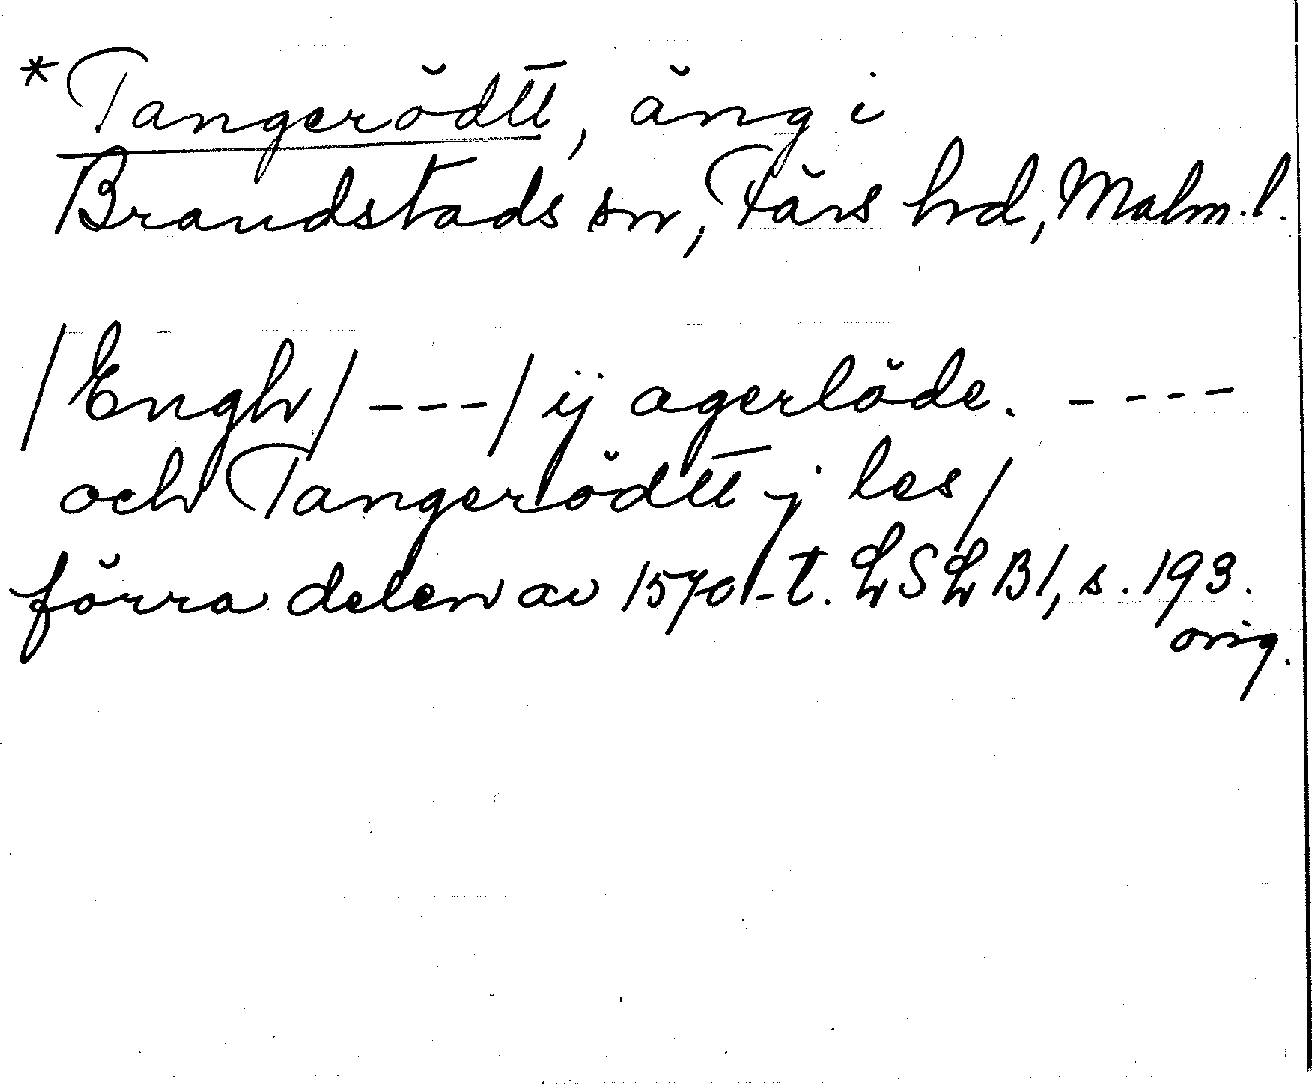 *Tangerödtt, äng i
Brandstads sn, Färs hd, Malm. l.
/Engh/ --- / ij agerlöde. ----
och Tangerlödtt j les/
förra delen av 1570-t. LSLB1, s. 193.
orig.